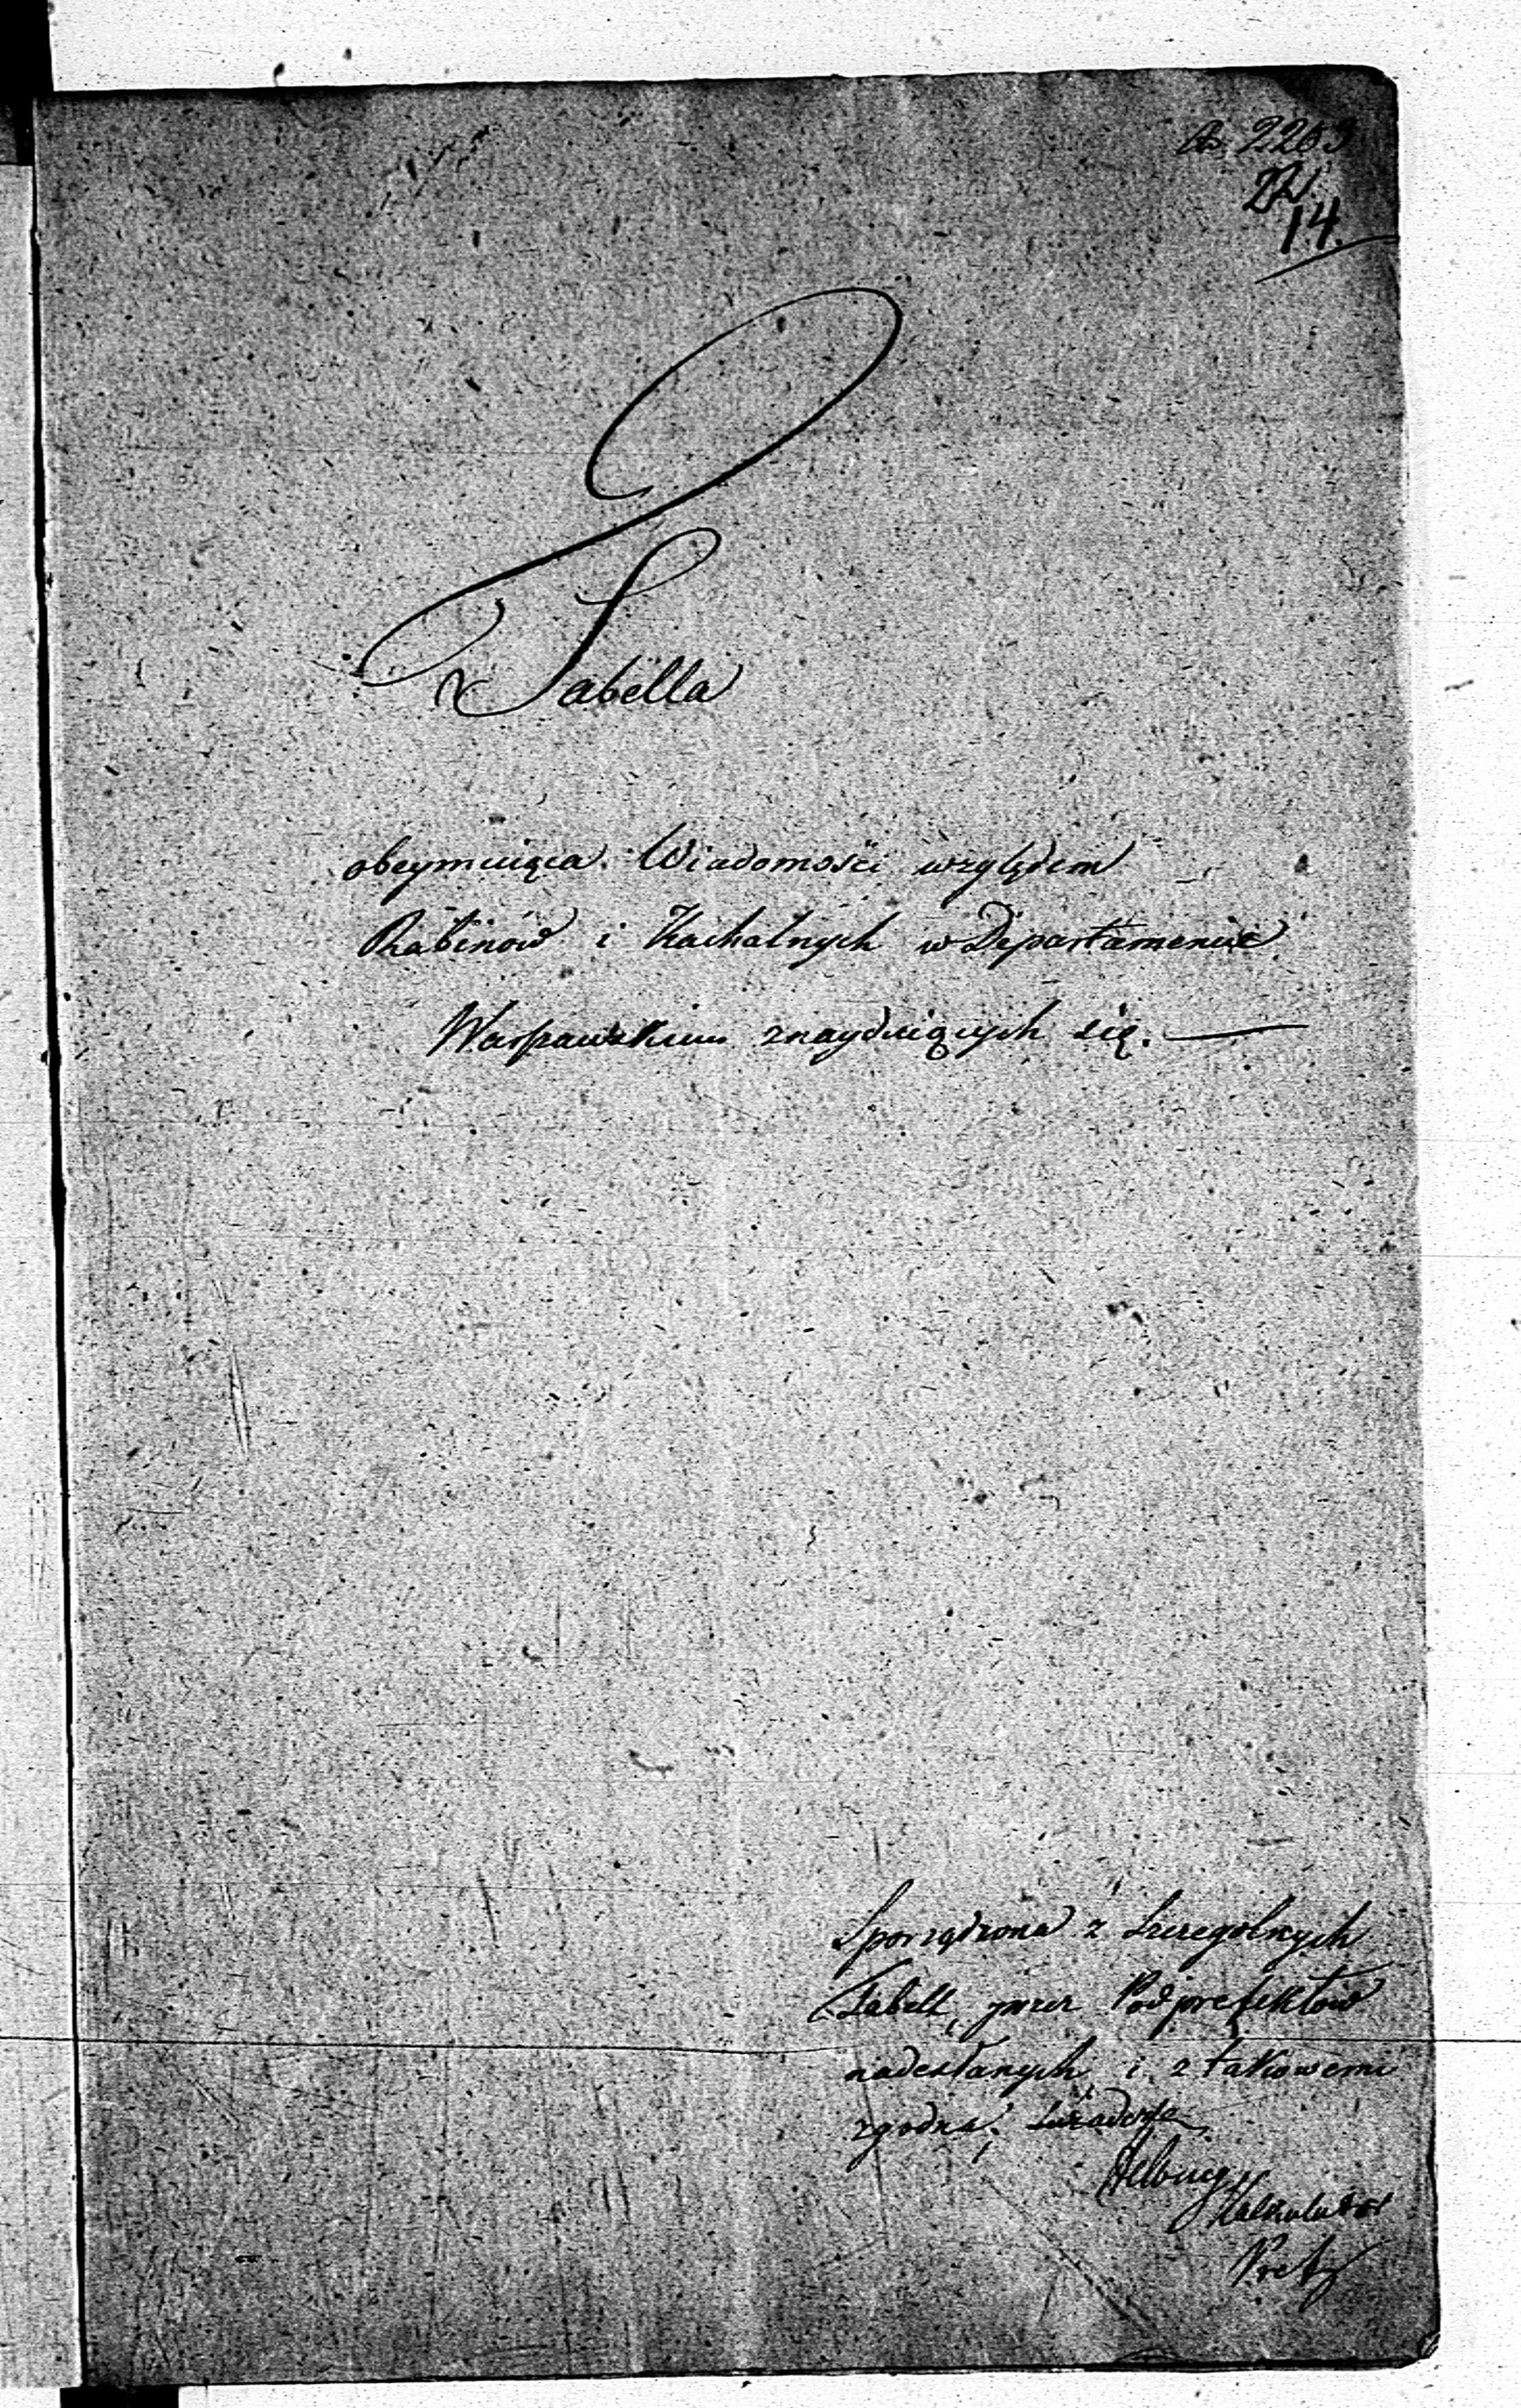 2263
14.
Tabella
obeymuiąca Wiadomości względem
Rabinów i Kachalnych w Departamencie
Warszawskim znayduiących się. —
Sporządzona z szczegolnych
Tabell, przez Podprefektów
nadesłanych, i z takowemi
zgodna, zaświadcza
Helbing
Kalkulator
Pref